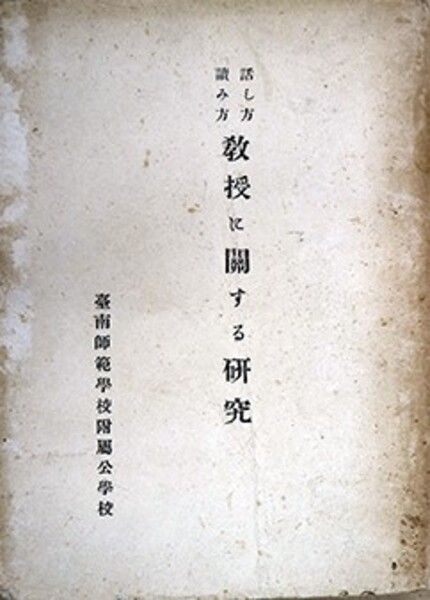 話し方
讀み方
教授に關する研究
臺南師範學校附屬公學校